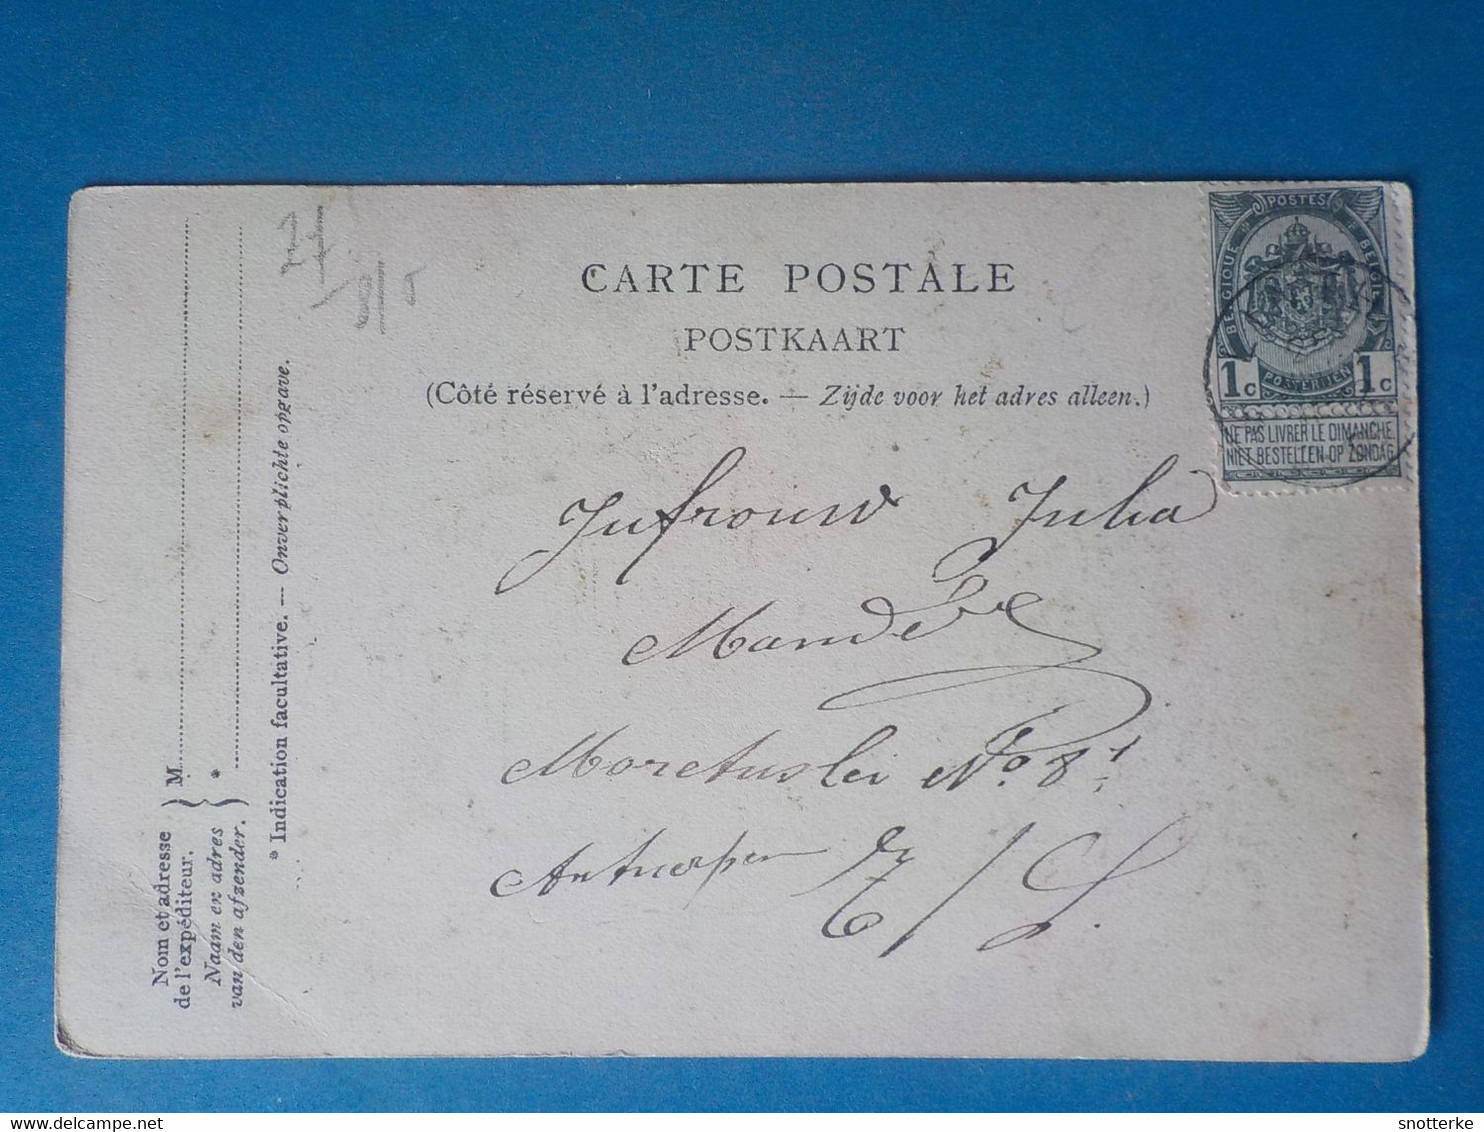 CARTE POSTALE
POSTKAART
(Côté réservé à l'adresse. — Zijde voor het adres alleen.)
POSTES
BELGIQUE
BELGIE
1c POSTERIJEN 1c
NE PAS LIVRER LE DIMANCHE
NIET BESTELLEN OP ZONDAG
Jufrouw Julia
Moretuslei No 81
Antwerpen
Nom et adresse
de l'expéditeur.
M
Naam en adres
van den afzender.
*
* Indication facultative. — Onverplichte opgave.
delcampe.net
snotterke